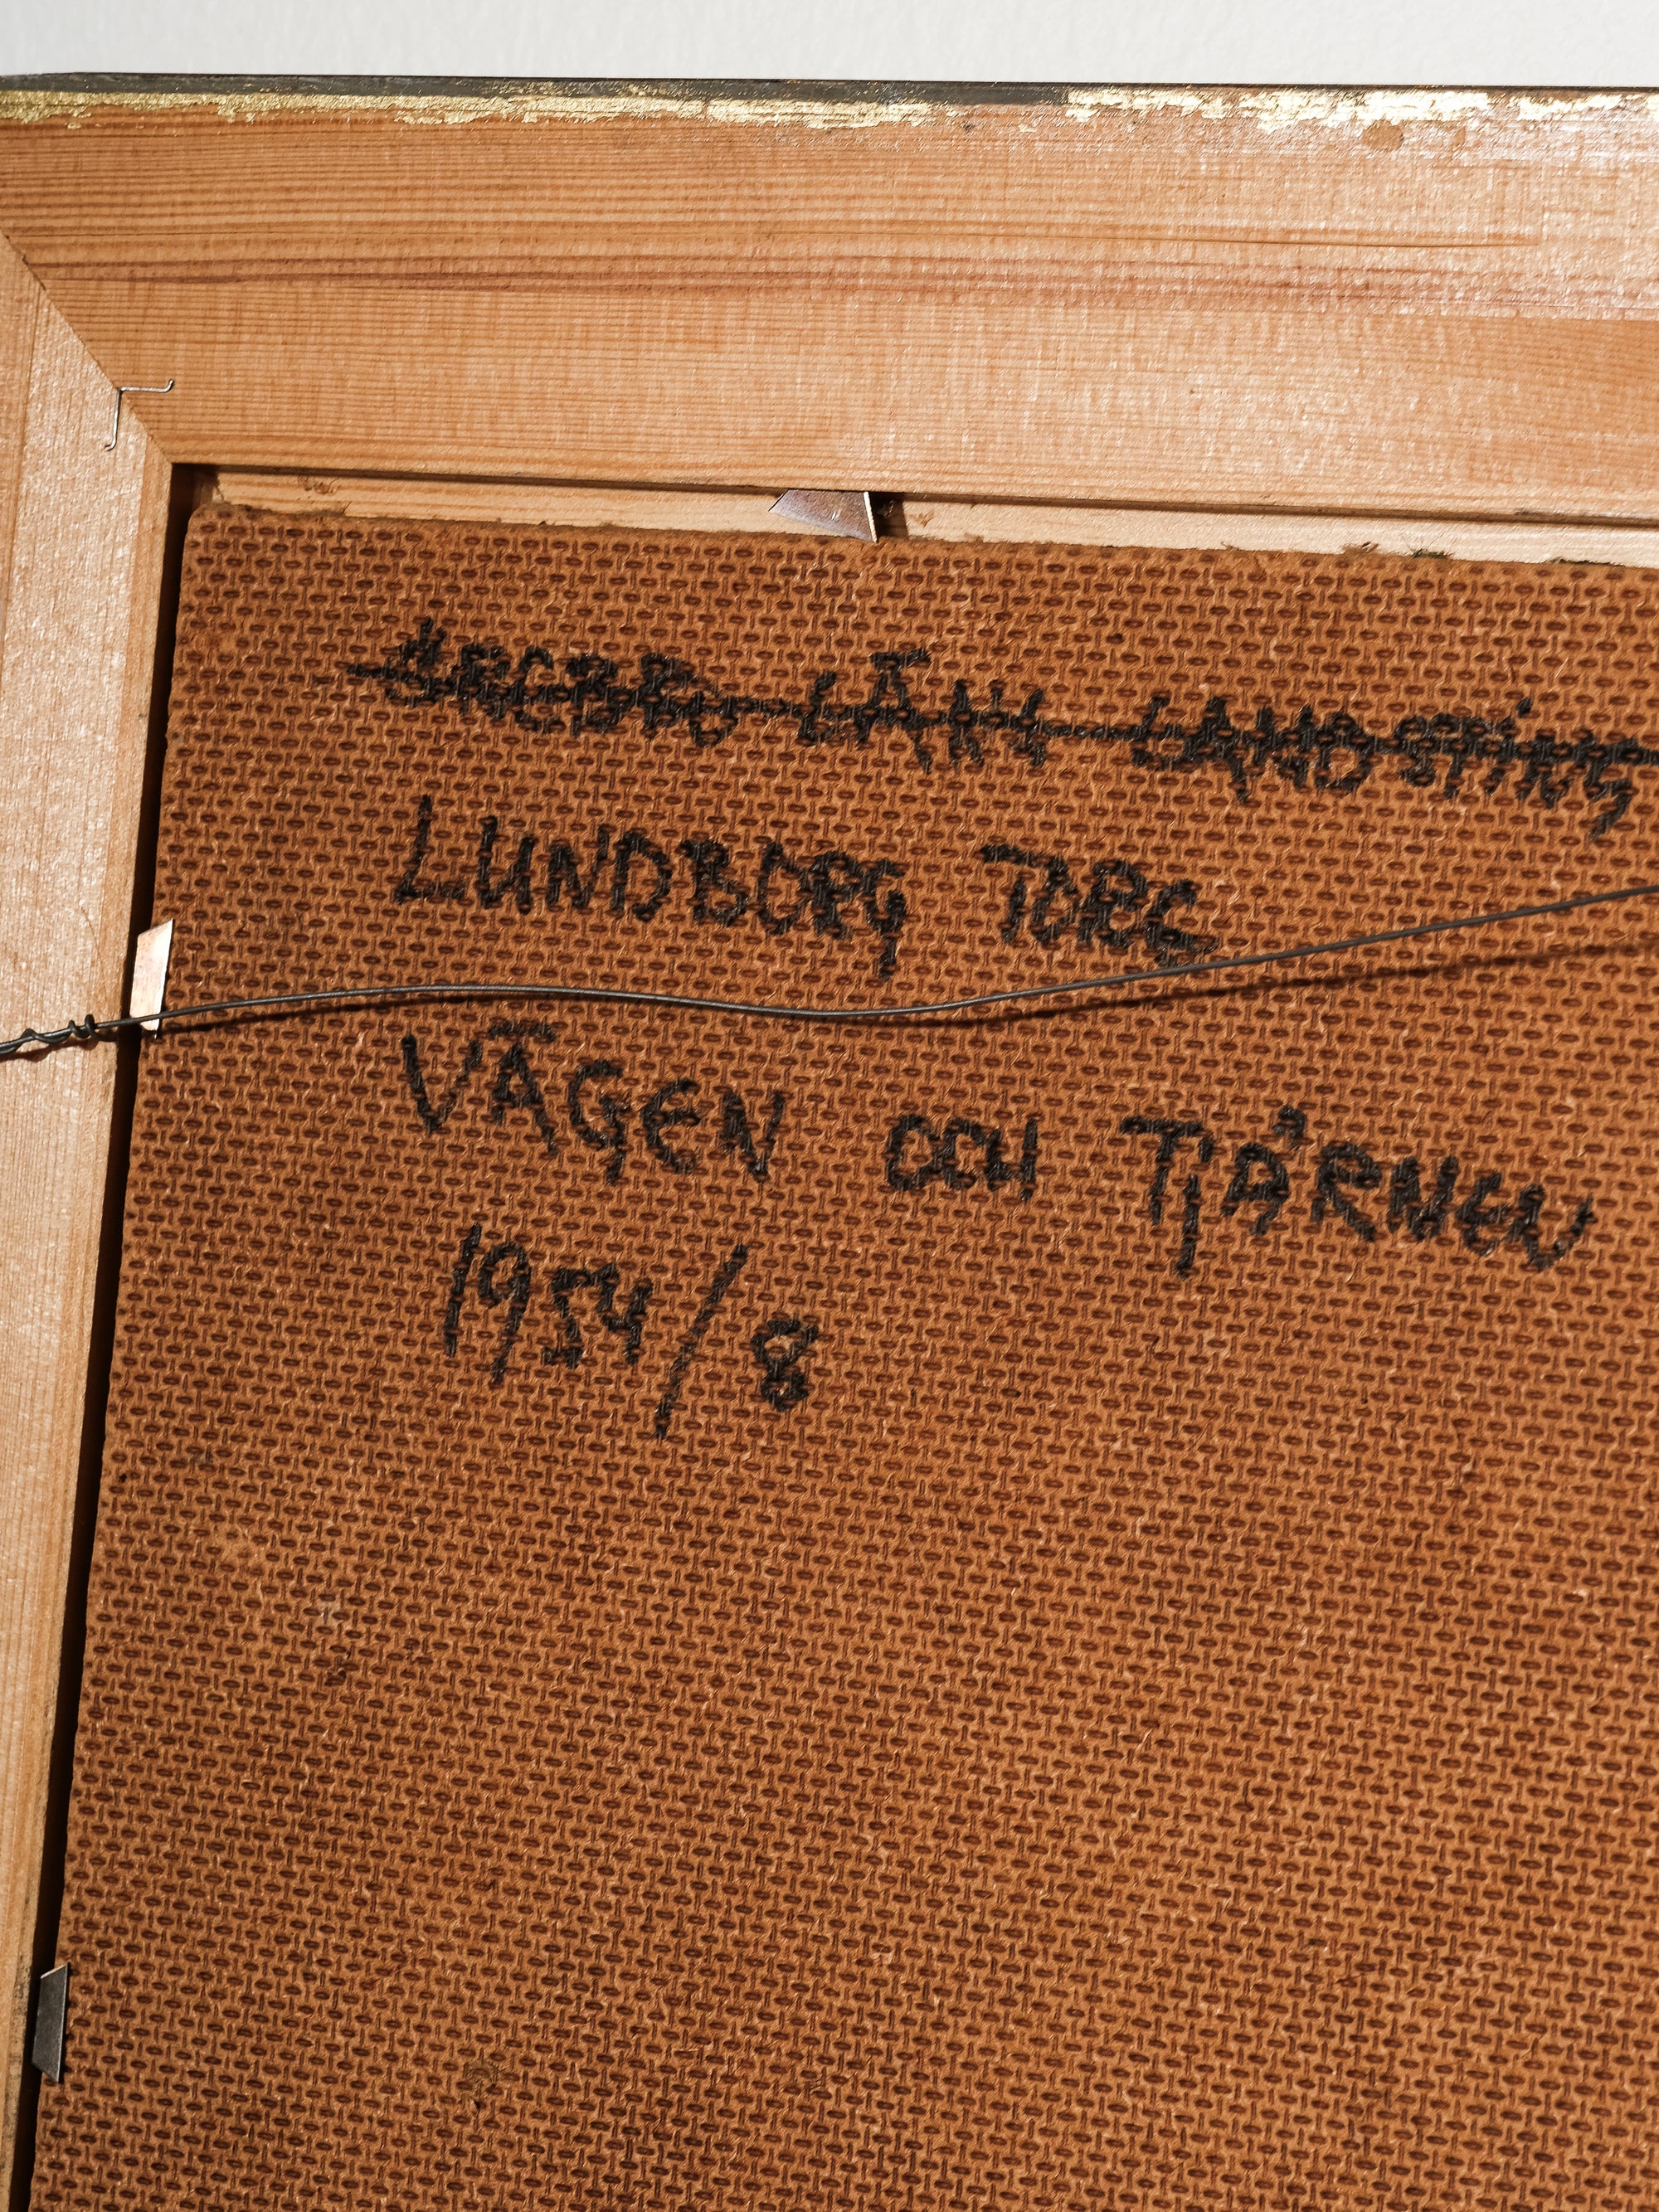 ÖREBRO LÄNS LANDSTING
LUNDBORG TORG
VÄGEN OCH TJÄRNEN
1954/8